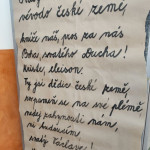 vévodo české země,
kníže náš, pros za nás
Boha, svatého Ducha!
Kriste, eleison.
Ty jsi dědic české země,
rozpomeň se na své plémě
nedej zahynouti nám,
ni budoucím
svatý Václave!